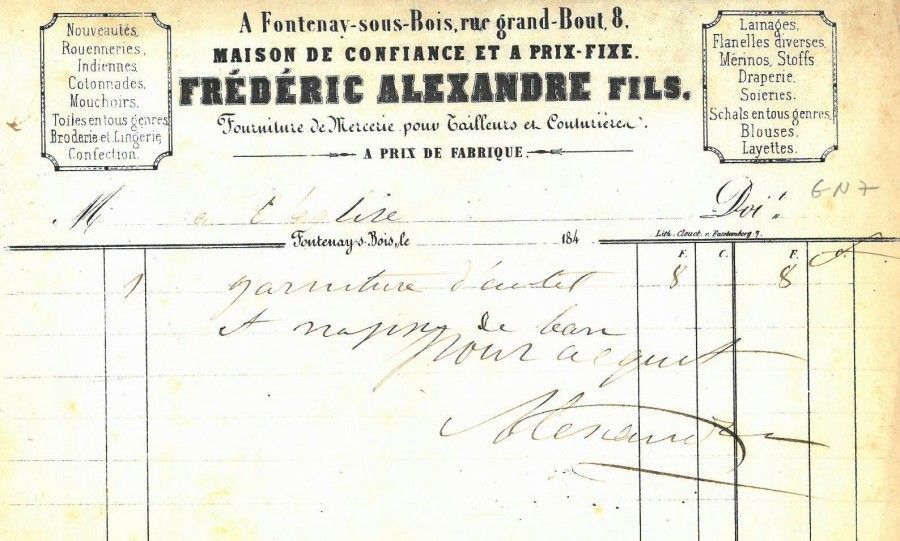 A Fontenay-sous-Bois, rue grand-Bout, 8.
MAISON DE CONFIANCE ET A PRIX-FIXE.
FRÉDÉRIC ALEXANDRE FILS.
Fourniture de Mercerie pour Tailleurs et Couturières.
A PRIX DE FABRIQUE.
Nouveautés,
Rouenneries,
Indiennes,
Cotonnades,
Mouchoirs,
Toiles en tous genres
Broderie et Lingerie,
Confection.
Lainages,
Flanelles diverses,
Mérinos, Stoffs
Draperie,
Soieries,
Schals en tous genres,
Blouses,
Layettes.
6N7
M l'église Doit
Fontenay-s-Bois, le 184
Lith. Clouet r. Furstemberg 7.
F. C. F.
1 garniture d'autel 8 8
et de
pour acquit
Alexandre